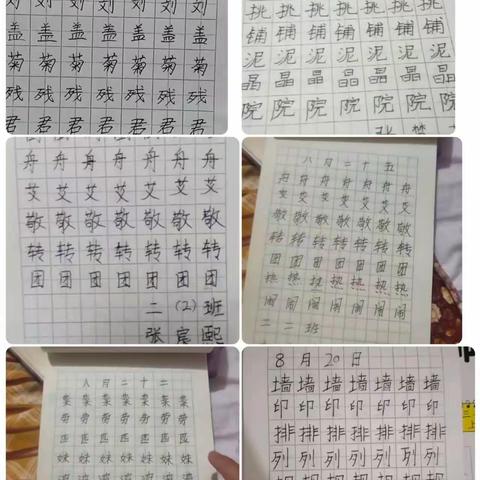 刘 刘 刘 刘 刘 刘 刘
盖 盖 盖 盖 盖 盖 盖
菊 菊 菊 菊 菊 菊 菊
残 残 残 残 残 残 残
君 君 君 君 君 君 君
挑 挑 挑 挑 挑 挑 挑
铺 铺 铺 铺 铺 铺 铺
泥 泥 泥 泥 泥 泥 泥
晶 晶 晶 晶 晶 晶 晶
院 院 院 院 院 院 院
舟 舟 舟 舟 舟 舟 舟
艾 艾 艾 艾 艾 艾 艾
敬 敬 敬 敬 敬 敬 敬
转 转 转 转 转 转 转
团 团 团 团 团 团 团
二 (2) 班
张 宸 熙
八 月 二 十 五
舟 舟 舟 舟 舟 舟 舟
艾 艾 艾 艾 艾 艾 艾
敬 敬 敬 敬 敬 敬 敬
转 转 转 转 转 转 转
团 团 团 团 团 团 团
热 热 热 热 热 热 热
闹 闹 闹 闹 闹 闹 闹
二 二 班
八 月 二 十 二
劳 劳 劳 劳 劳 劳 劳
匹 匹 匹 匹 匹 匹 匹
妹 妹 妹 妹 妹 妹 妹
8 月 20 日
墙 墙 墙 墙 墙 墙 墙
印 印 印 印 印 印 印
排 排 排 排 排 排 排
列 列 列 列 列 列 列